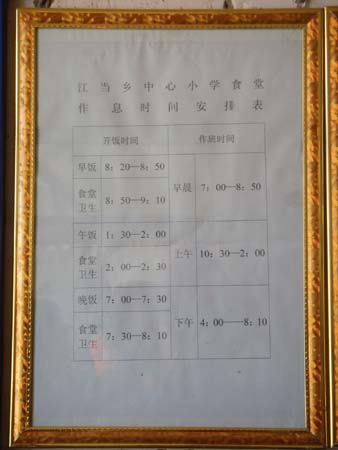 江当乡中心小学食堂
作息时间安排表
开饭时间 作班时间
早饭 8：20—8：50
食堂卫生 8：50—9：10
早晨 7：00—8：50
午饭 1：30—2：00
食堂卫生 2：00—2：30
上午 10：30—2：00
晚饭 7：00—7：30
食堂卫生 7：30—8：10
下午 4：00——8：10